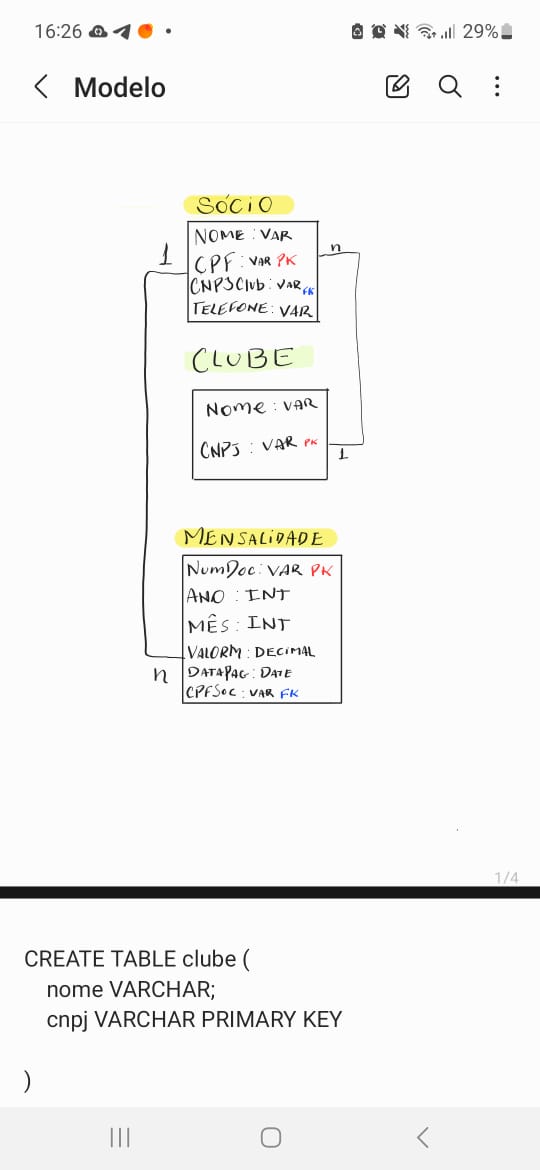 16:26
29%
Modelo
SÓCIO
NOME : VAR
1
n
CPF : VAR PK
CNPJClub : VAR FK
TELEFONE : VAR
CLUBE
Nome : VAR
CNPJ : VAR PK
1
MENSALIDADE
NumDoc : VAR PK
ANO : INT
MÊS : INT
VALORM : DECIMAL
n
DATAPAG : DATE
CPFSoc : VAR FK
1/4
CREATE TABLE clube (
nome VARCHAR;
cnpj VARCHAR PRIMARY KEY
)